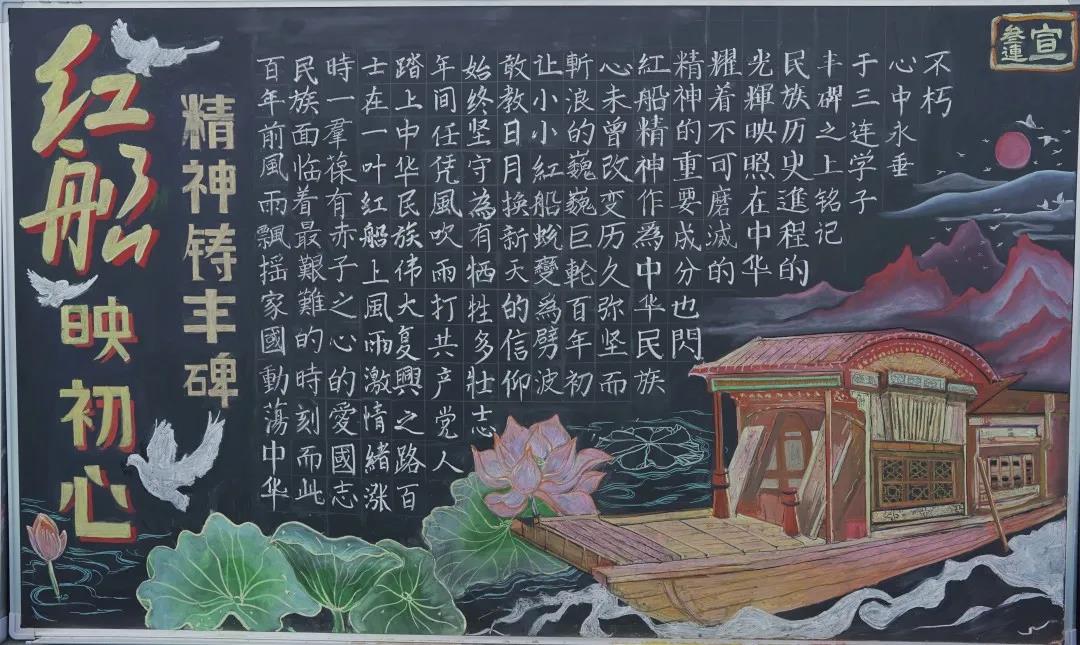 红船
映初心
精神铸丰碑
百年前風雨飄摇家國動荡中华
民族面临着最艱難的時刻而此
時一羣葆有赤子之心的愛國志
士在一叶红船上風雨激情緒涨
踏上中华民族伟大复興之路百
年间任凭風吹雨打共产党人
始终坚守為有牺牲多壮志
敢教日月换新天的信仰
让小小紅船蜕變為劈波
斬浪的巍巍巨轮百年初
心未曾改变历久弥坚而
紅船精神作為中华民族
精神的重要成分也閃
耀着不可磨滅的
光輝映照在中华
民族历史進程的
丰碑之上铭记
于三连学子
心中永垂
不朽
叁連
宣